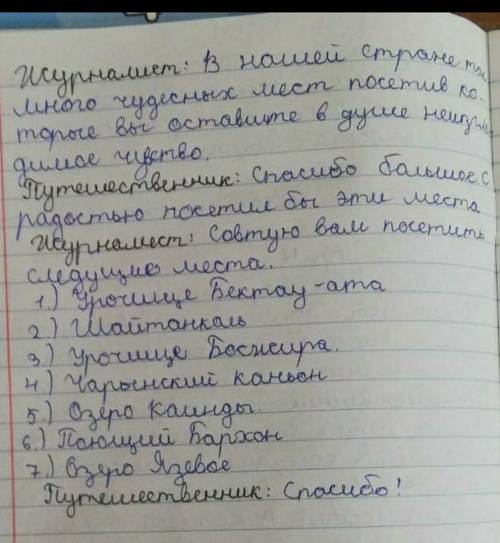 Журналист: В нашей стране так
много чудесных мест посетив ко-
торые вы оставите в душе неизгла
димое чувство.
Путешественник: Спасибо большое. С
радостью посетил бы эти места
Журналист: Совтую вам посетить
следущие места.
1) Урочище Бектау-ата
2) Шайтанколь
3.) Урочище Босжира.
4) Чарынский каньон
5.) Озеро Каинды.
6.) Поющий Бархон
7.) Озеро Язевое
Путешественник: Спасибо!